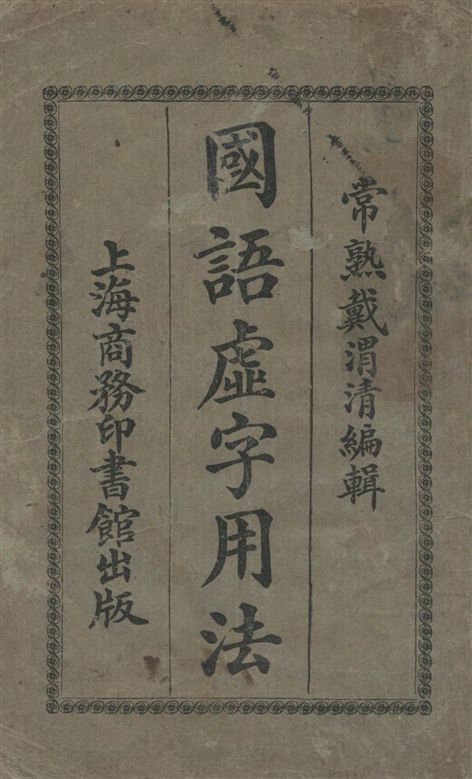 常熟戴渭清編輯
國語虛字用法
上海商務印書館出版